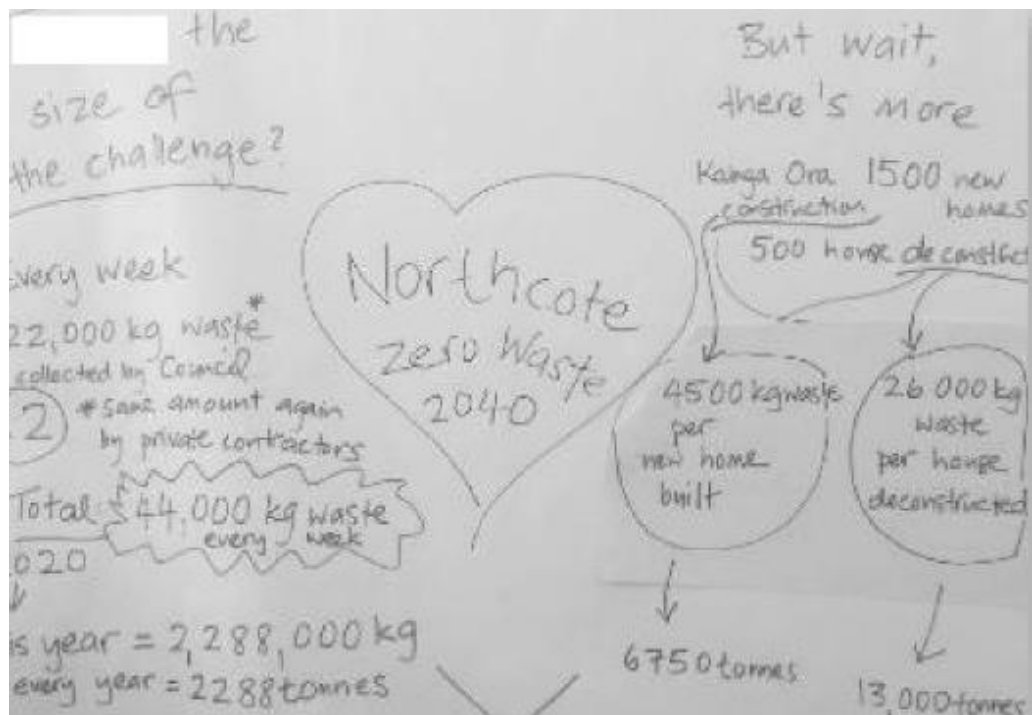 the
size of
the challenge?
every week
22,000 kg waste*
collected by Council
2 *same amount again
by private contractors
Total 44,000 kg waste
every week
020
is year = 2,288,000 kg
every year = 2288 tonnes
Northcote
Zero Waste
2040
But wait,
there's more
Kanga Ora 1500 new
construction homes
500 house deconstruct
4500 kg waste
per
new home
built
26 000 kg
waste
per house
deconstructed
6750 tonnes
13,000 tonnes